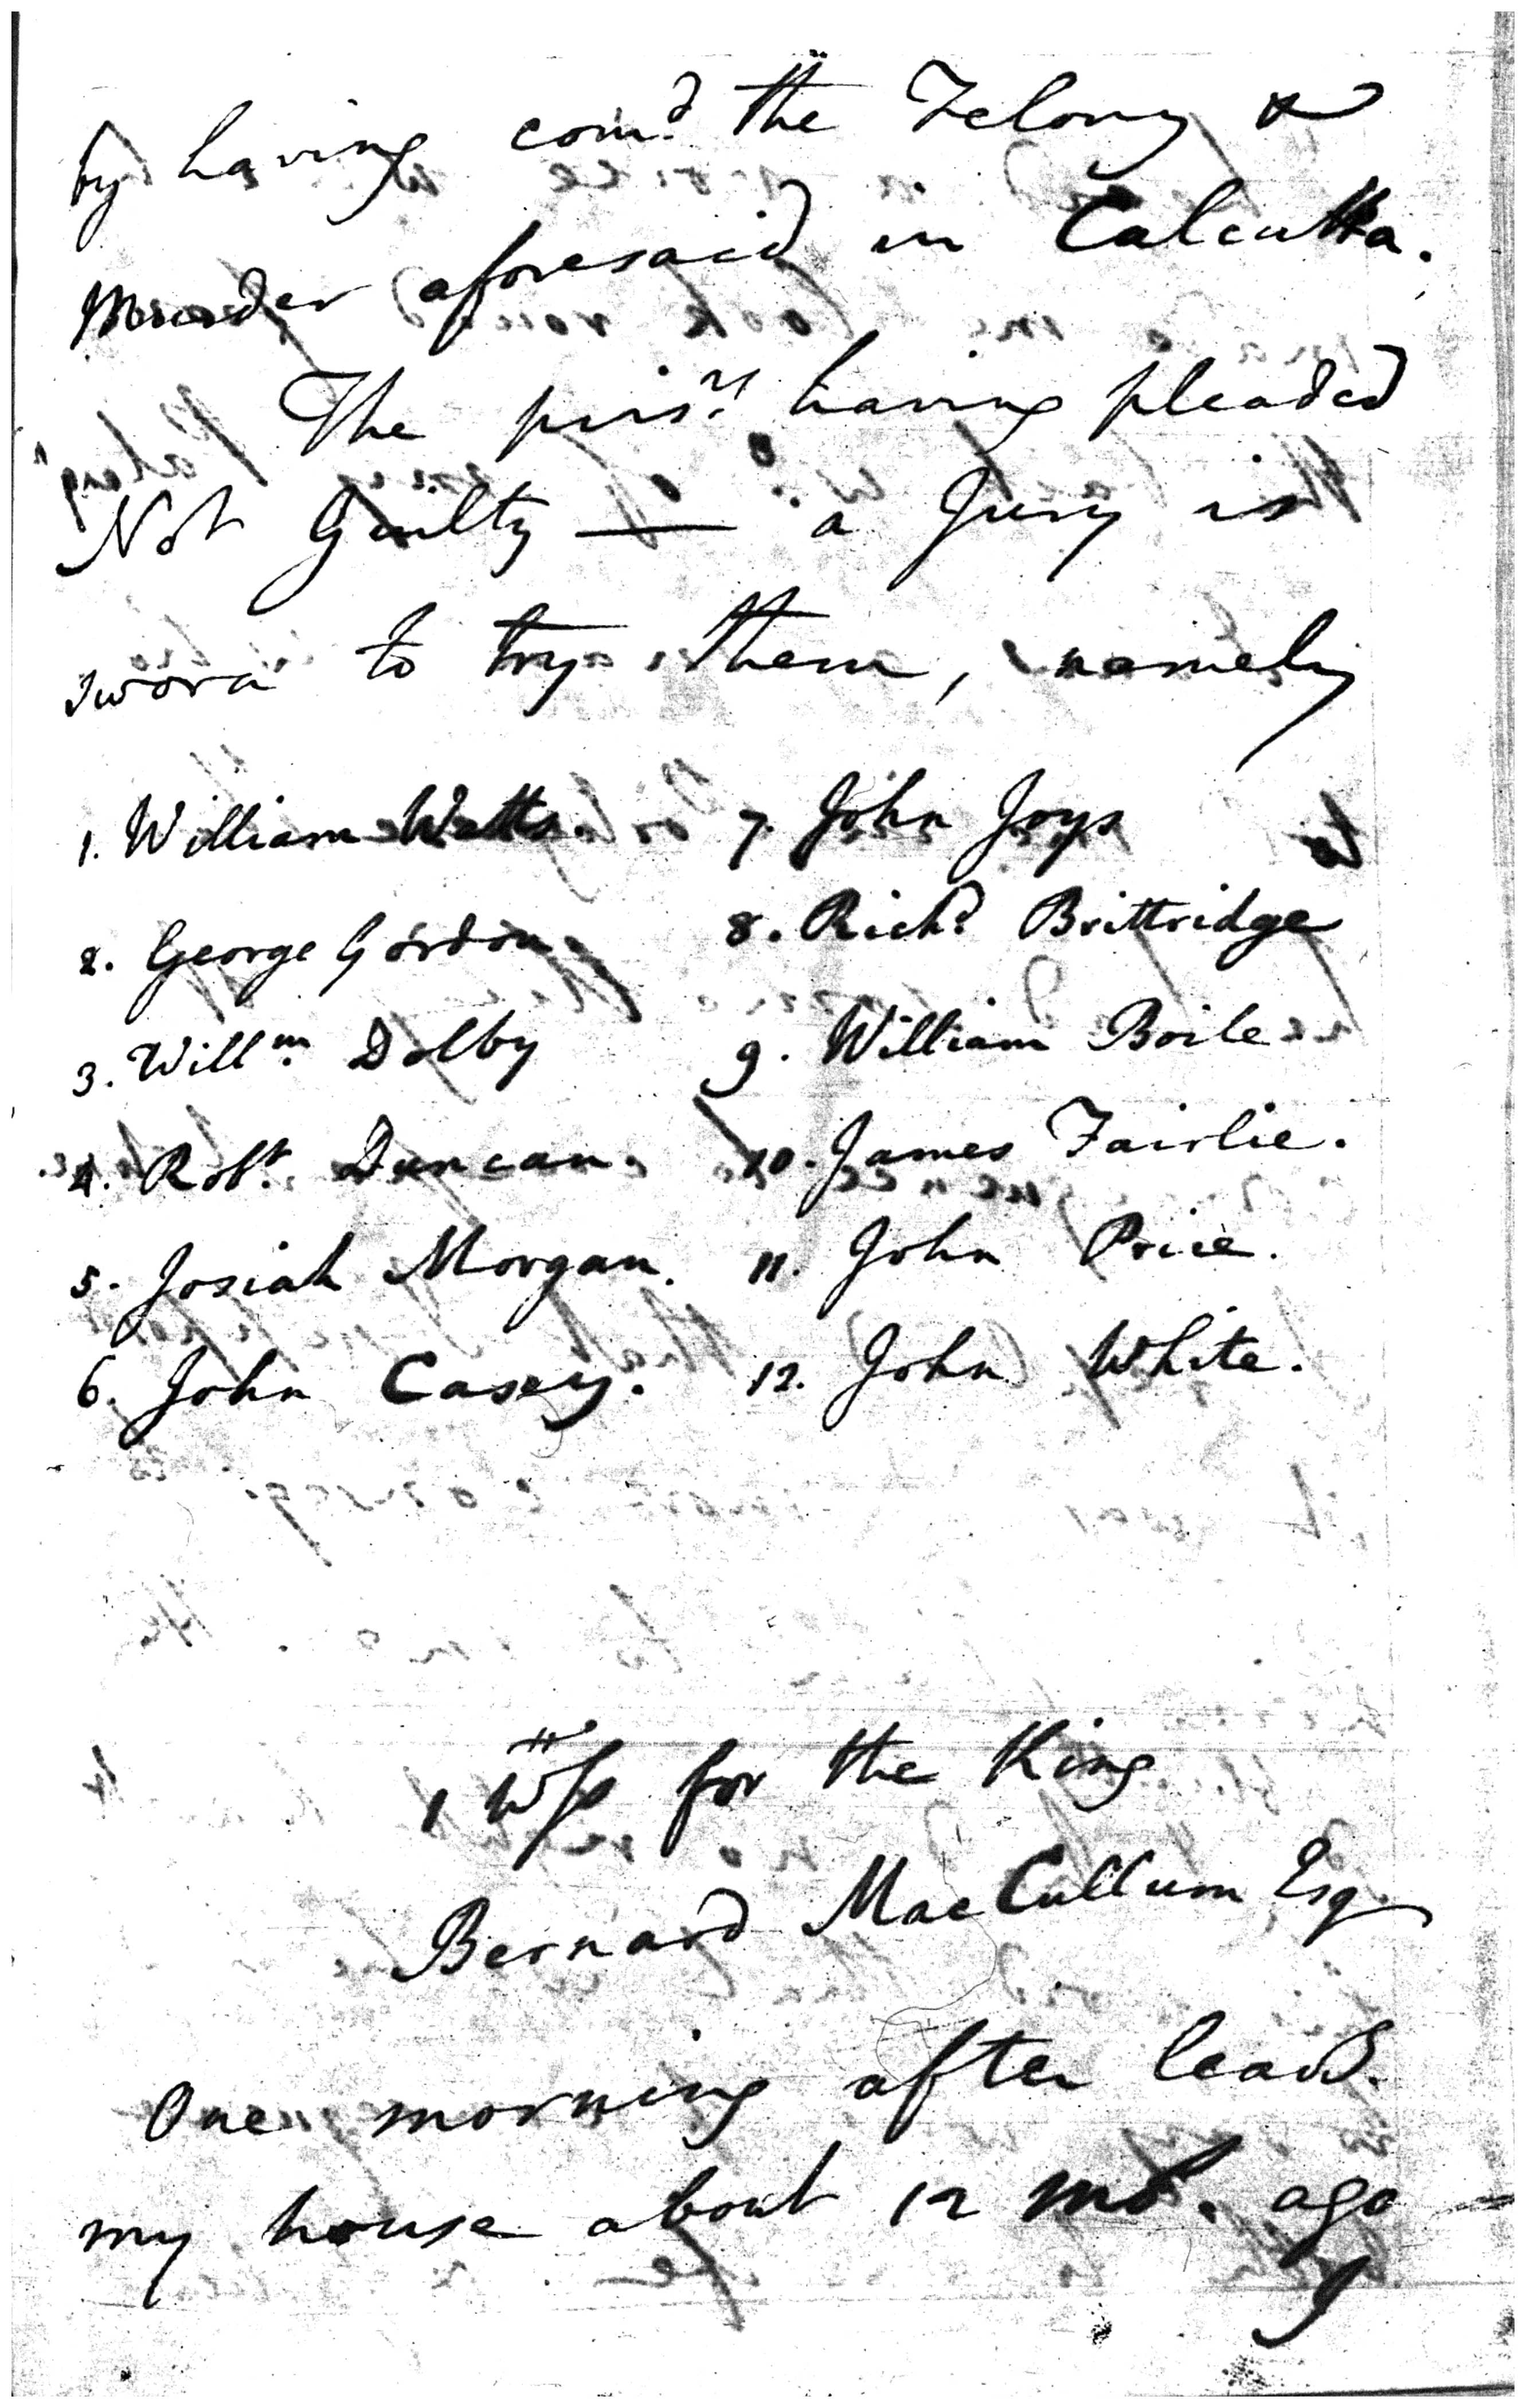 by having com.d the Felony &
Murder aforesaid in Calcutta.
The pris.rs having pleaded
Not Guilty — a Jury is
sworn to try them, namely
1. William Watts. 7. John Joys
2. George Gordon. 8. Rich.d Brittridge
3. Will.m Dolby 9. William Boile
4. Rob.t Duncan. 10. James Fairlie.
5. Josiah Morgan. 11. John Price.
6. John Casey. 12. John White.
1 W/s for the King
Bernard MacCullum Esq
One morning after leav.g
my house about 12 mo. ago